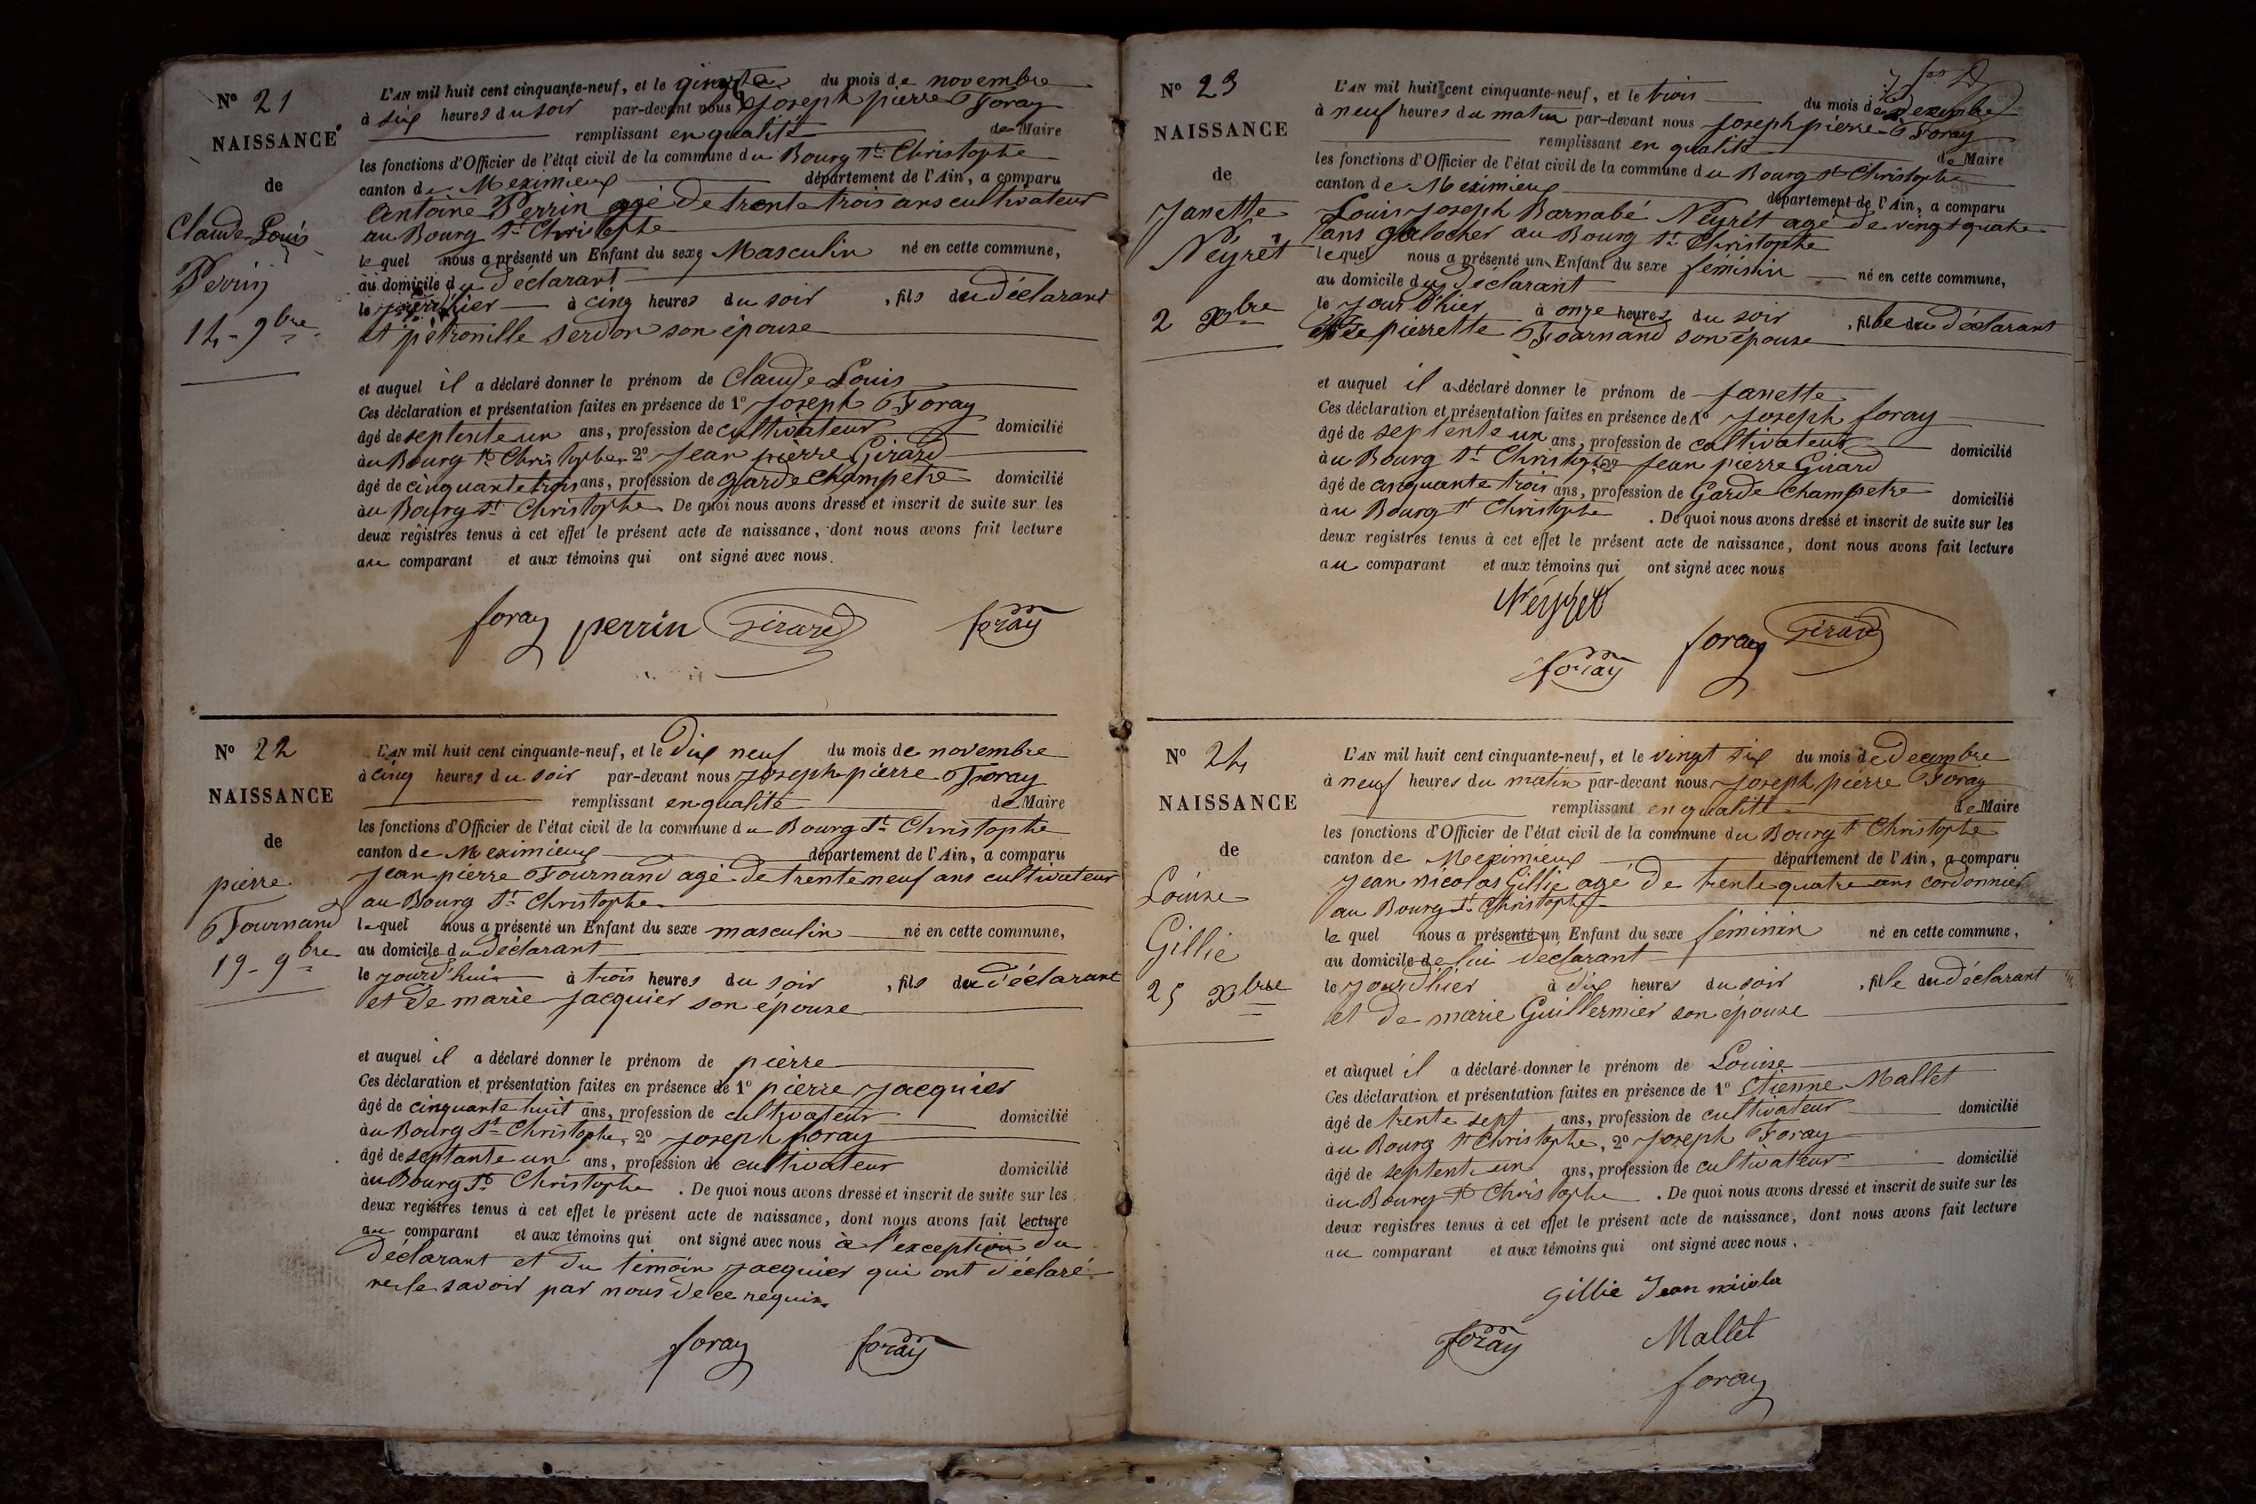 N° 21
NAISSANCE
de
Claude Louis
Perrin
14 - 9bre
L'AN mil huit cent cinquante-neuf, et le quinze du mois de novembre
à six heures du soir par-devant nous Joseph pierre Foray
remplissant en qualité de Maire
les fonctions d'Officier de l'état civil de la commune du Bourg St Christophe
canton de Meximieux département de l'Ain, a comparu
antoine Perrin agé de trente trois ans cultivateur
au Bourg St Christophe
lequel nous a présenté un Enfant du sexe Masculin né en cette commune,
au domicile du déclarant
le jour d'hier à cinq heures du soir, fils du déclarant
et pétronille serdon son épouse
et auquel il a déclaré donner le prénom de Claude Louis
Ces déclaration et présentation faites en présence de 1° Joseph Foray
âgé de septente un ans, profession de cultivateur domicilié
au Bourg St Christophe, 2° Jean pierre Girard
âgé de cinquante trois ans, profession de garde champetre domicilié
au Bourg St Christophe De quoi nous avons dressé et inscrit de suite sur les
deux registres tenus à cet effet le présent acte de naissance, dont nous avons fait lecture
au comparant et aux témoins qui ont signé avec nous.
foray perrin Girard foray
N° 22
NAISSANCE
de
pierre
Fournand
19 - 9bre
L'AN mil huit cent cinquante-neuf, et le dix neuf du mois de novembre
à cinq heures du soir par-devant nous Joseph pierre Foray
remplissant en qualité de Maire
les fonctions d'Officier de l'état civil de la commune du Bourg St Christophe
canton de Meximieux département de l'Ain, a comparu
Jean pierre Fournand agé de trente neuf ans cultivateur
au Bourg St Christophe
lequel nous a présenté un Enfant du sexe masculin né en cette commune,
au domicile du déclarant
le jourd'hui à trois heures du soir, fils du déclarant
et de marie Jacquier son épouse
et auquel il a déclaré donner le prénom de pierre
Ces déclaration et présentation faites en présence de 1° pierre Jacquier
âgé de cinquante huit ans, profession de cultivateur domicilié
au Bourg St Christophe, 2° Joseph foray
âgé de septante un ans, profession de cultivateur domicilié
au Bourg St Christophe. De quoi nous avons dressé et inscrit de suite sur les
deux registres tenus à cet effet le présent acte de naissance, dont nous avons fait lecture
au comparant et aux témoins qui ont signé avec nous à l'exception du
déclarant et du témoin Jacquier qui ont déclaré
ne le savoir par nous de ce requis.
foray foray
N° 23
NAISSANCE
de
Janette
Néyrêt
2 Xbre
L'AN mil huit cent cinquante-neuf, et le trois du mois de decembre
à neuf heures du matin par-devant nous Joseph pierre Foray
remplissant en qualité de Maire
les fonctions d'Officier de l'état civil de la commune du Bourg St Christophe
canton de Meximieux département de l'Ain, a comparu
Louis Joseph Barnabé Néyrêt agé de vingt quatre
ans galocher au Bourg St Christophe
lequel nous a présenté un Enfant du sexe féminin né en cette commune,
au domicile du déclarant
le jour d'hier à onze heures du soir, fille du déclarant
et de pierrette Fournand son épouse
et auquel il a déclaré donner le prénom de Janette
Ces déclaration et présentation faites en présence de 1° Joseph foray
âgé de septente un ans, profession de cultivateur domicilié
au Bourg St Christophe Jean pierre Girard
âgé de cinquante trois ans, profession de Garde champetre domicilié
au Bourg St Christophe. De quoi nous avons dressé et inscrit de suite sur les
deux registres tenus à cet effet le présent acte de naissance, dont nous avons fait lecture
au comparant et aux témoins qui ont signé avec nous
Néyret
foray Girard
foray
N° 24
NAISSANCE
de
Louise
Gillie
25 Xbre
L'AN mil huit cent cinquante-neuf, et le vingt six du mois de decembre
à neuf heures du matin par-devant nous Joseph pierre Foray
remplissant en qualité de Maire
les fonctions d'Officier de l'état civil de la commune du Bourg St Christophe
canton de Meximieux département de l'Ain, a comparu
Jean nicolas Gillie agé de trente quatre ans cordonnier
au Bourg St Christophe
le quel nous a présenté un Enfant du sexe féminin né en cette commune,
au domicile de lui déclarant
le jour d'hier à dix heures du soir, fille du déclarant
et de marie Guillermier son épouse
et auquel il a déclaré donner le prénom de Louise
Ces déclaration et présentation faites en présence de 1° Etienne Mallet
âgé de trente sept ans, profession de cultivateur domicilié
au Bourg St Christophe, 2° Joseph Foray
âgé de septente un ans, profession de cultivateur domicilié
au Bourg St Christophe. De quoi nous avons dressé et inscrit de suite sur les
deux registres tenus à cet effet le présent acte de naissance, dont nous avons fait lecture
au comparant et aux témoins qui ont signé avec nous.
Gillie Jean nicola
foray Mallet
foray